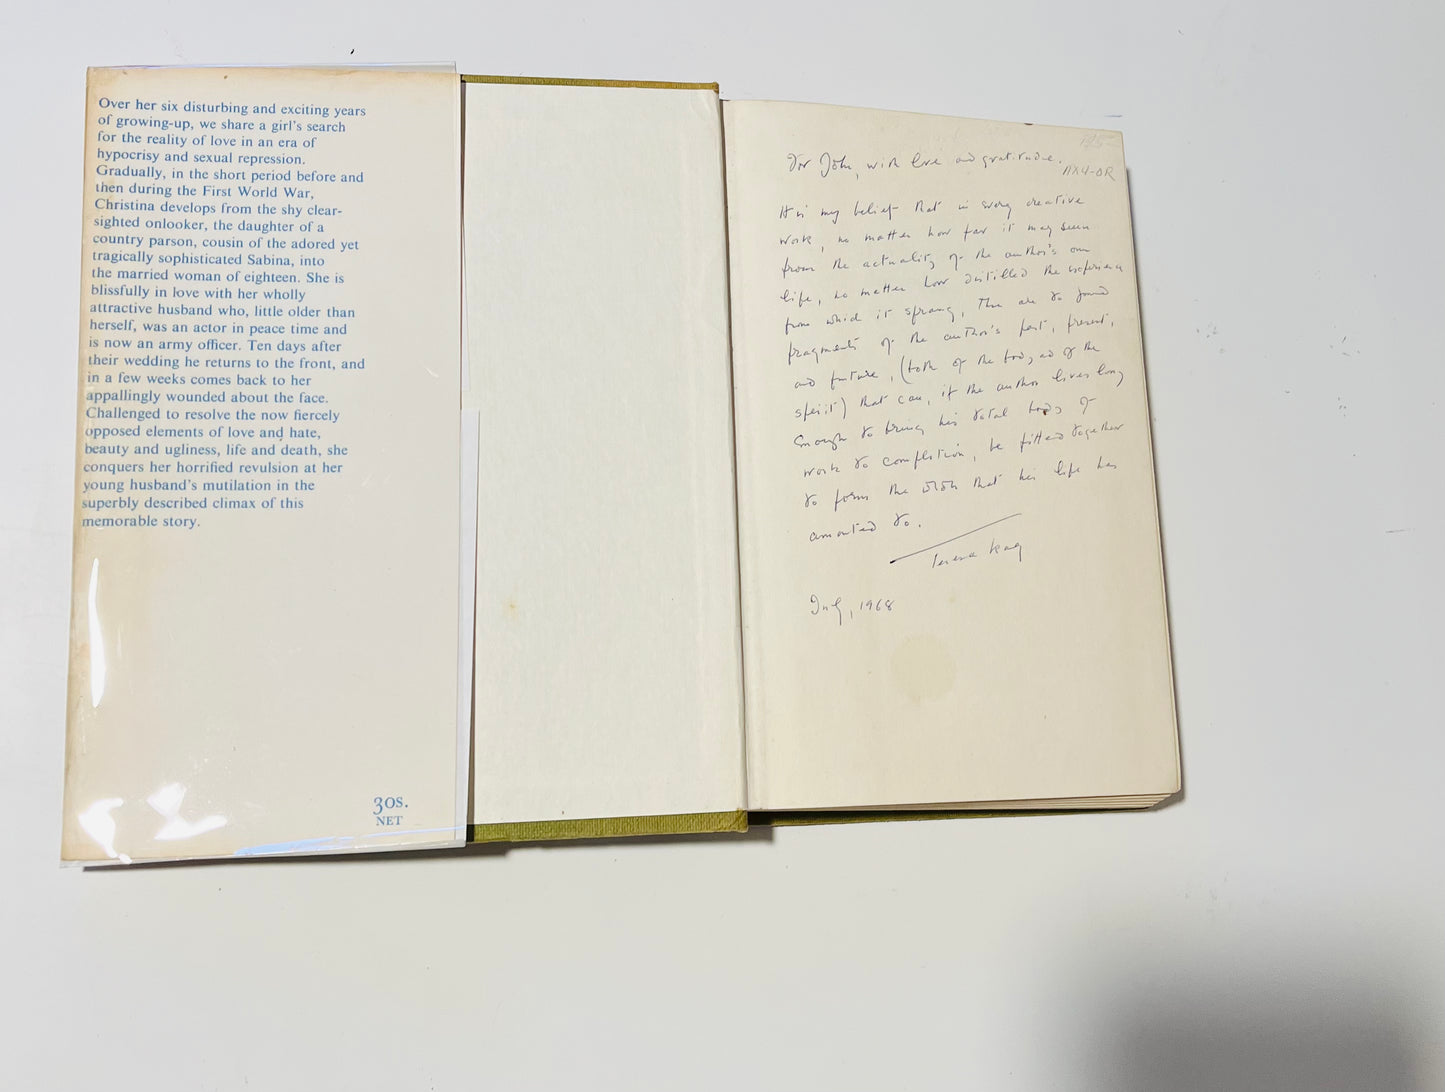 Over her six disturbing and exciting years
of growing-up, we share a girl's search
for the reality of love in an era of
hypocrisy and sexual repression.
Gradually, in the short period before and
then during the First World War,
Christina develops from the shy clear-
sighted onlooker, the daughter of a
country parson, cousin of the adored yet
tragically sophisticated Sabina, into
the married woman of eighteen. She is
blissfully in love with her wholly
attractive husband who, little older than
herself, was an actor in peace time and
is now an army officer. Ten days after
their wedding he returns to the front, and
in a few weeks comes back to her
appallingly wounded about the face.
Challenged to resolve the now fiercely
opposed elements of love and hate,
beauty and ugliness, life and death, she
conquers her horrified revulsion at her
young husband's mutilation in the
superbly described climax of this
memorable story.
30s.
NET
For John, with love and gratitude.
It is my belief that in every creative
work, no matter how far it may seem
from the actuality of the author's own
life, no matter how distilled the experience
from which it sprang, there are to found
fragments of the author's past, present,
and future, (both of the body and of the
spirit) that can, if the author lives long
enough to bring his total body of
work to completion, be fitted together
to form the whole that his life has
amounted to.
July, 1968